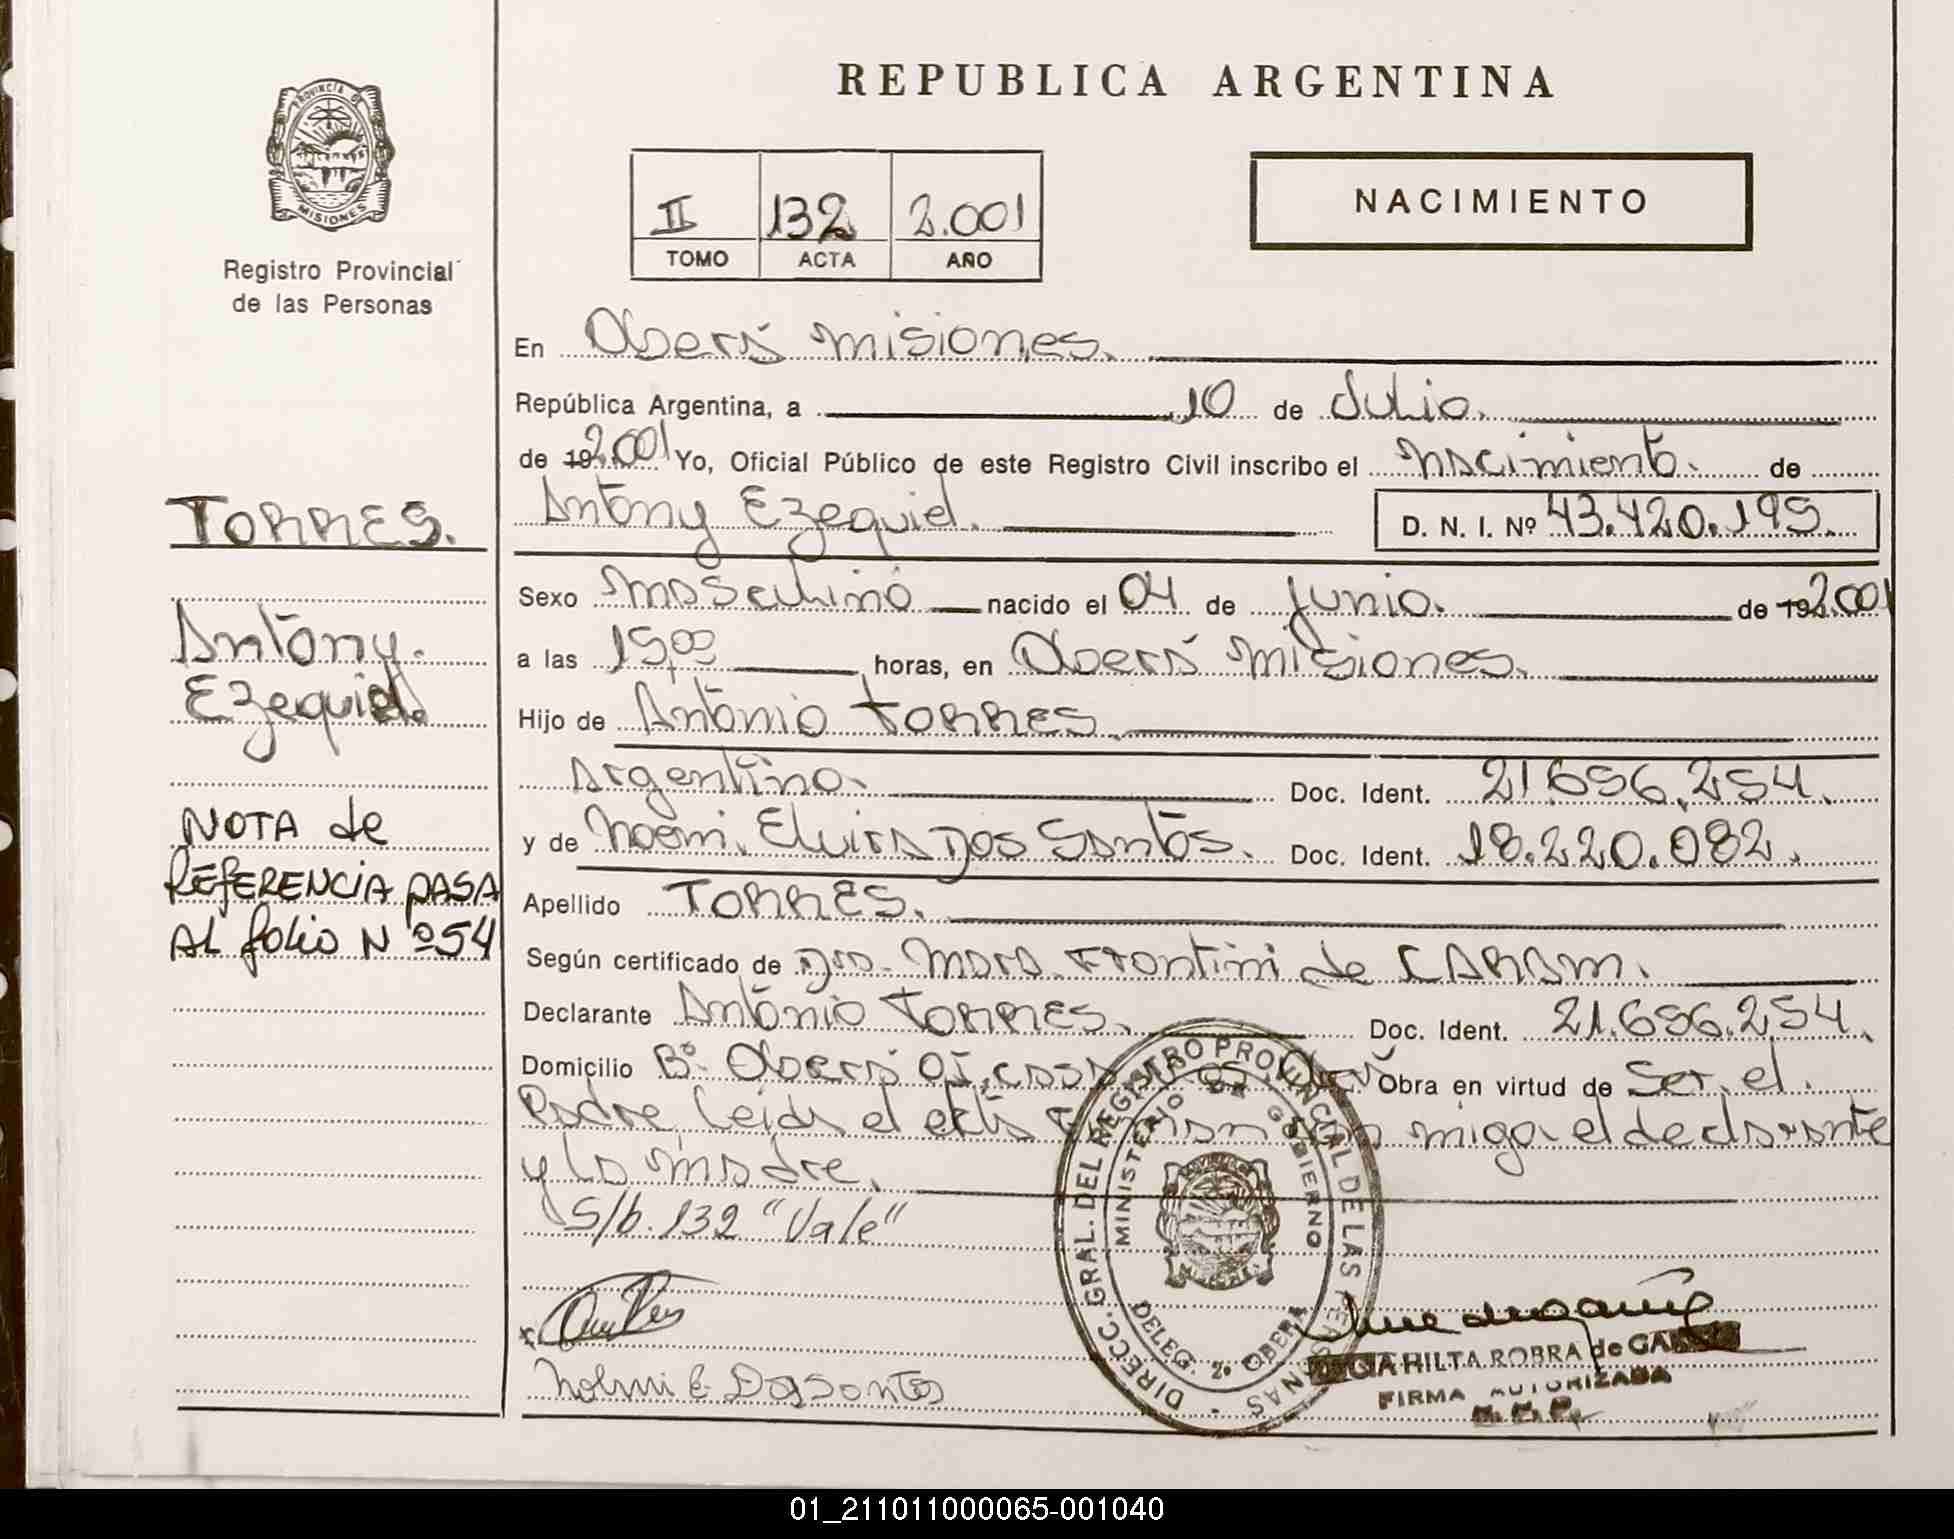 PROVINCIA DE
MISIONES
Registro Provincial
de las Personas
TORRES.
Antony.
Ezequiel.
NOTA de
REFERENCIA PASA
AL folio Nº54
REPUBLICA ARGENTINA
II 132 2.001
TOMO ACTA AÑO
NACIMIENTO
En Oberá misiones.
República Argentina, a 10 de Julio.
de 19 2.001 Yo, Oficial Público de este Registro Civil inscribo el nacimiento. de
Antony Ezequiel. D. N. I. Nº 43.420.195.
Sexo masculino nacido el 04 de junio. de 19 2.001
a las 15,00 horas, en Oberá misiones.
Hijo de Antonio TORRES
Argentino. Doc. Ident. 21.656.254.
y de Noemi. Elvira Dos Santos. Doc. Ident. 18.220.082.
Apellido TORRES.
Según certificado de Dra. Mara Frontini de
Declarante Antonio TORRES. Doc. Ident. 21.656.254.
Domicilio Bº. Oberá Obra en virtud de Ser. el.
Padre, leida el acta con migo. el declarante
y la madre.
S/b. 132 "Vale"
DIRECC. GRAL. DEL REGISTRO PROVINCIAL DE LAS PERSONAS
MINISTERIO DE GOBIERNO
DELEG. 2º OBERÁ
HILTA ROBRA de
FIRMA AUTORIZADA
01_211011000065-001040